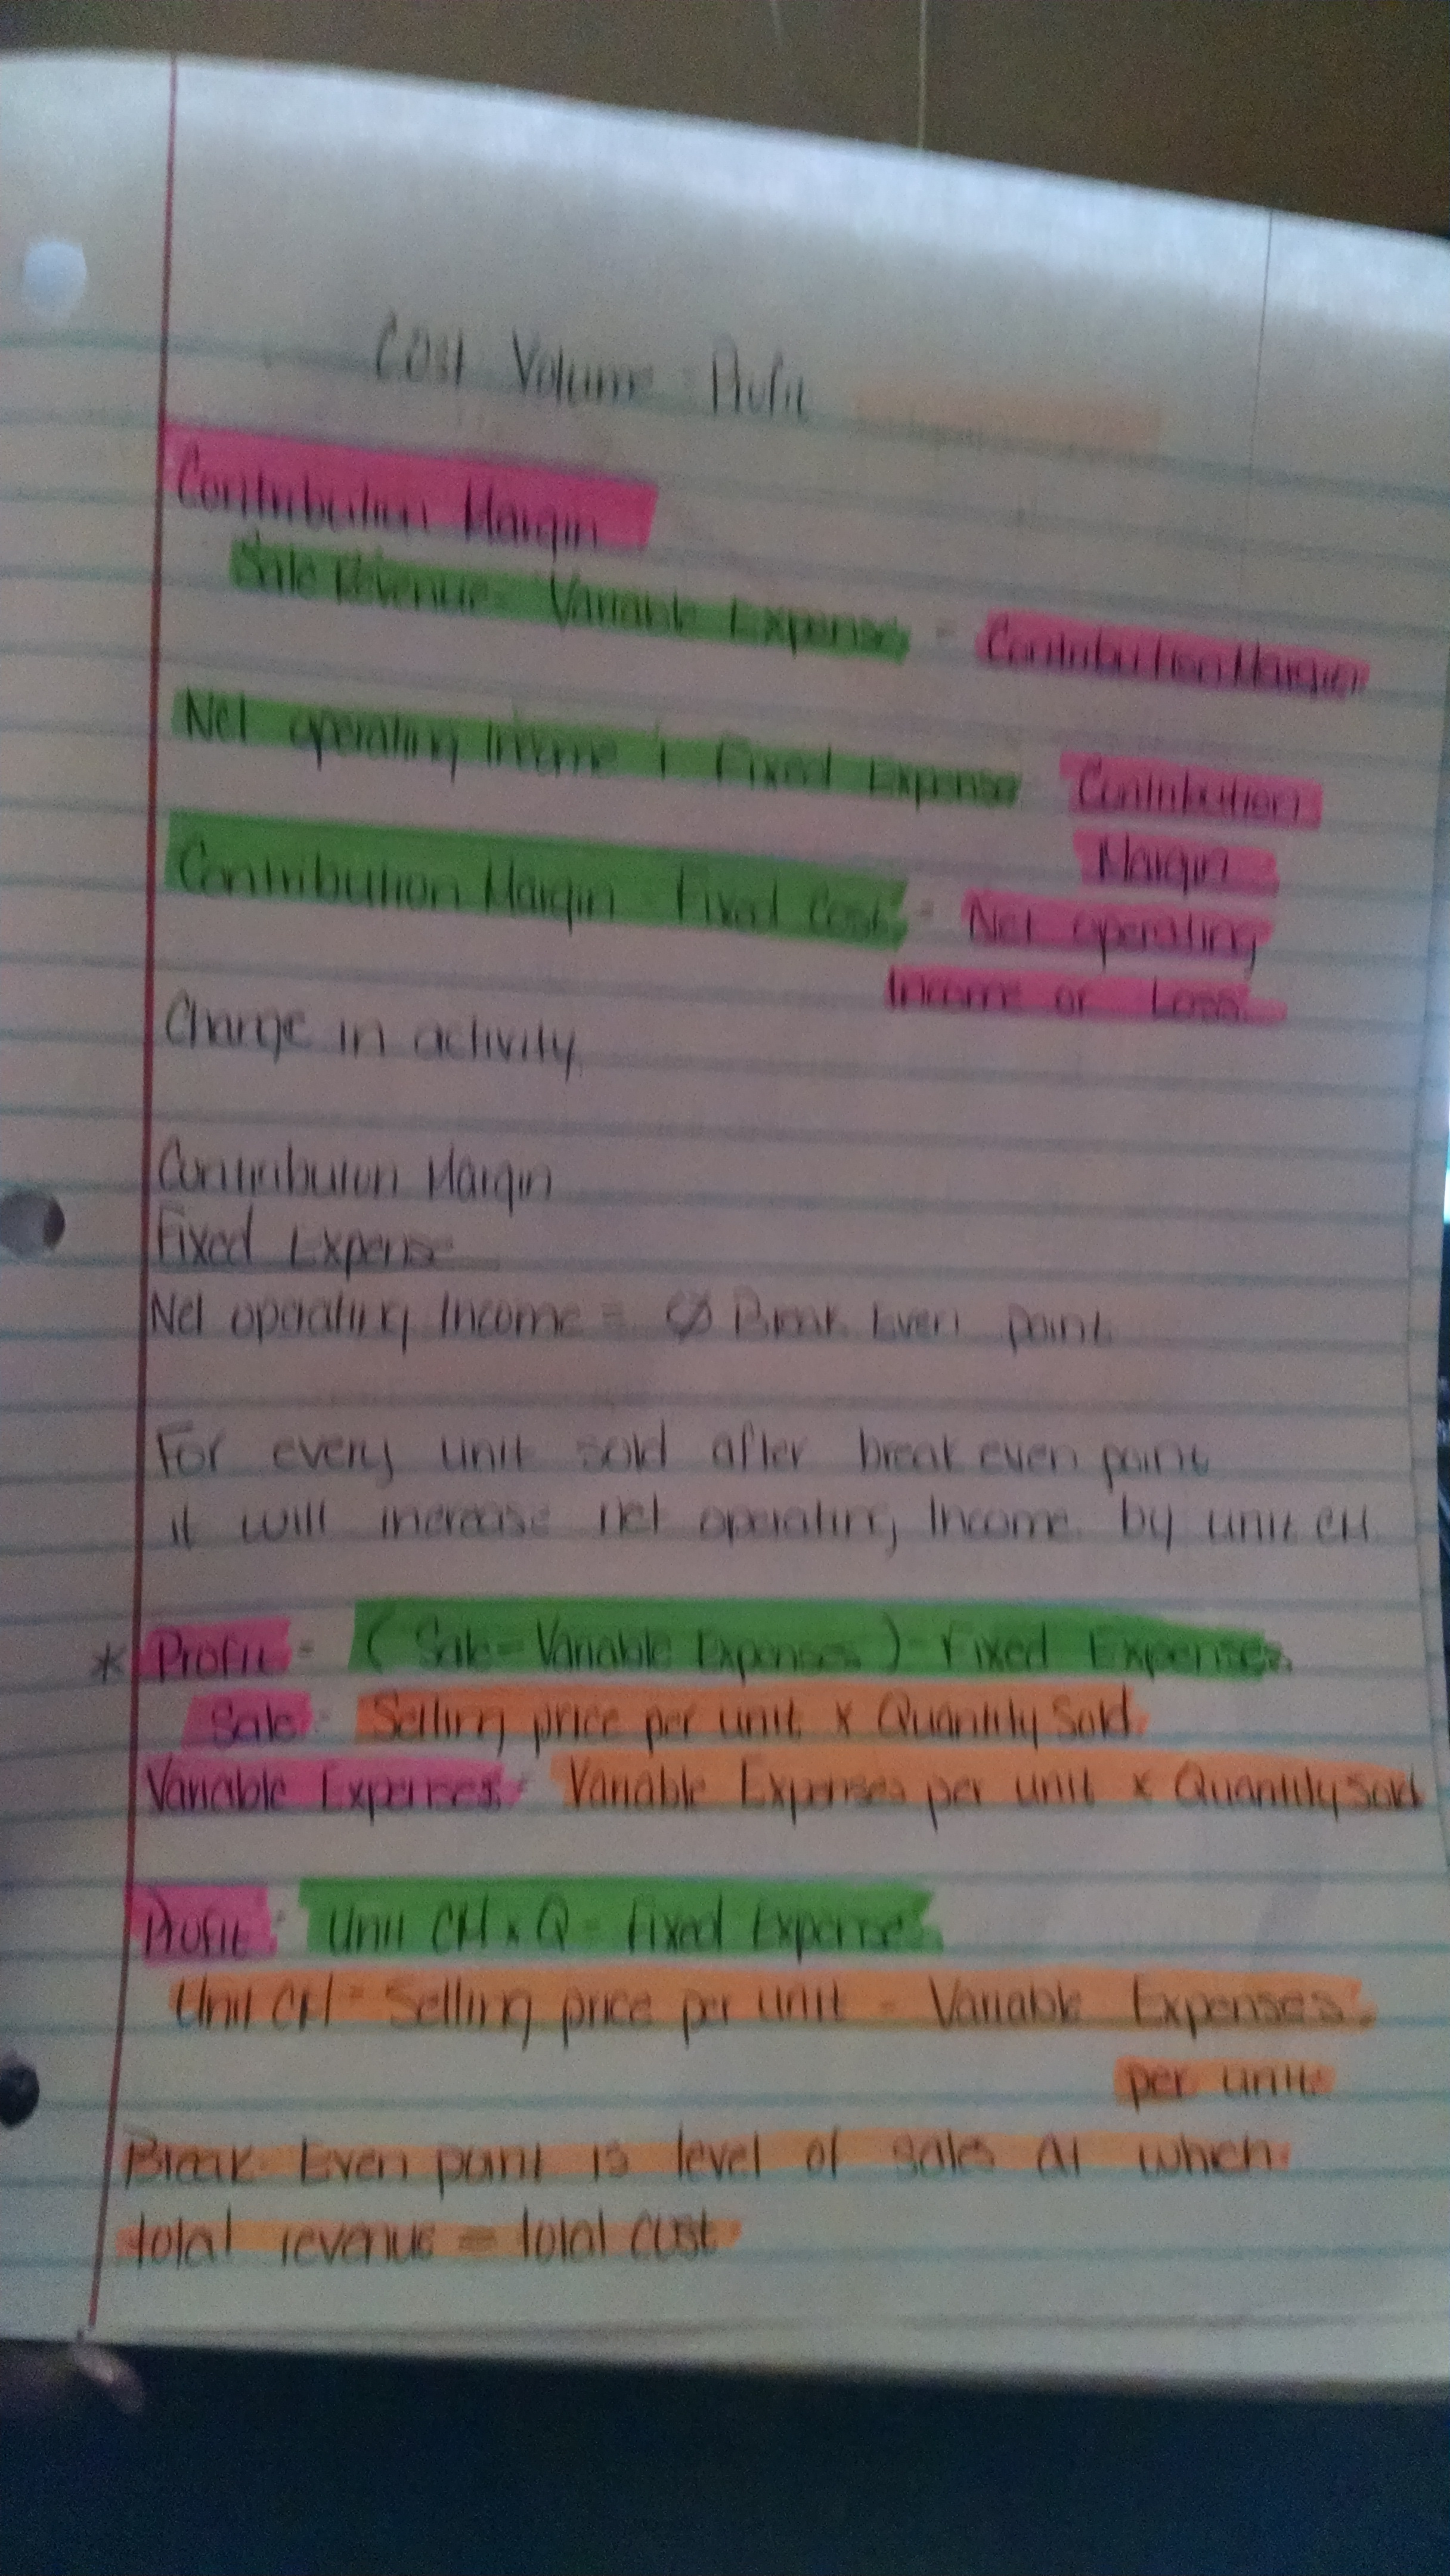 Cost Volume Profit
Contribution Margin
Sale Revenue - Variable Expenses = Contribution Margin
Net operating Income + Fixed Expense Contribution
Margin
Contribution Margin - Fixed Cost = Net operating
Income or Loss
Change in activity
Contribution Margin
Fixed Expense
Net operating Income = Ø Break Even point
For every unit sold after break even point
it will increase net operating Income by unit CM
* Profit = (Sale - Variable Expenses) - Fixed Expenses
Sale = Selling price per unit x Quantity Sold
Variable Expenses = Variable Expenses per unit x Quantity Sold
Profit = Unit CM x Q - Fixed Expense
Unit CM = Selling price per unit - Variable Expenses
per unit
Break Even point is level of sales at which
total revenue = total cost